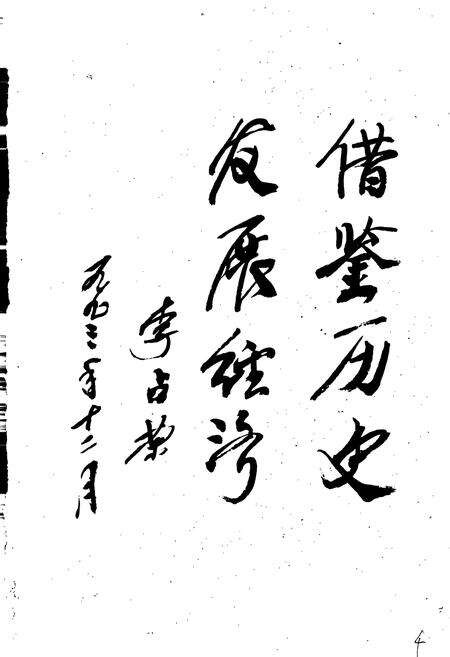 借鉴历史
发展经济
李占荣
一九九三年十二月
4